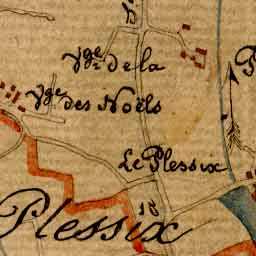 Vge. de la
Vge. des Noëls
Le Plessix
Plessix